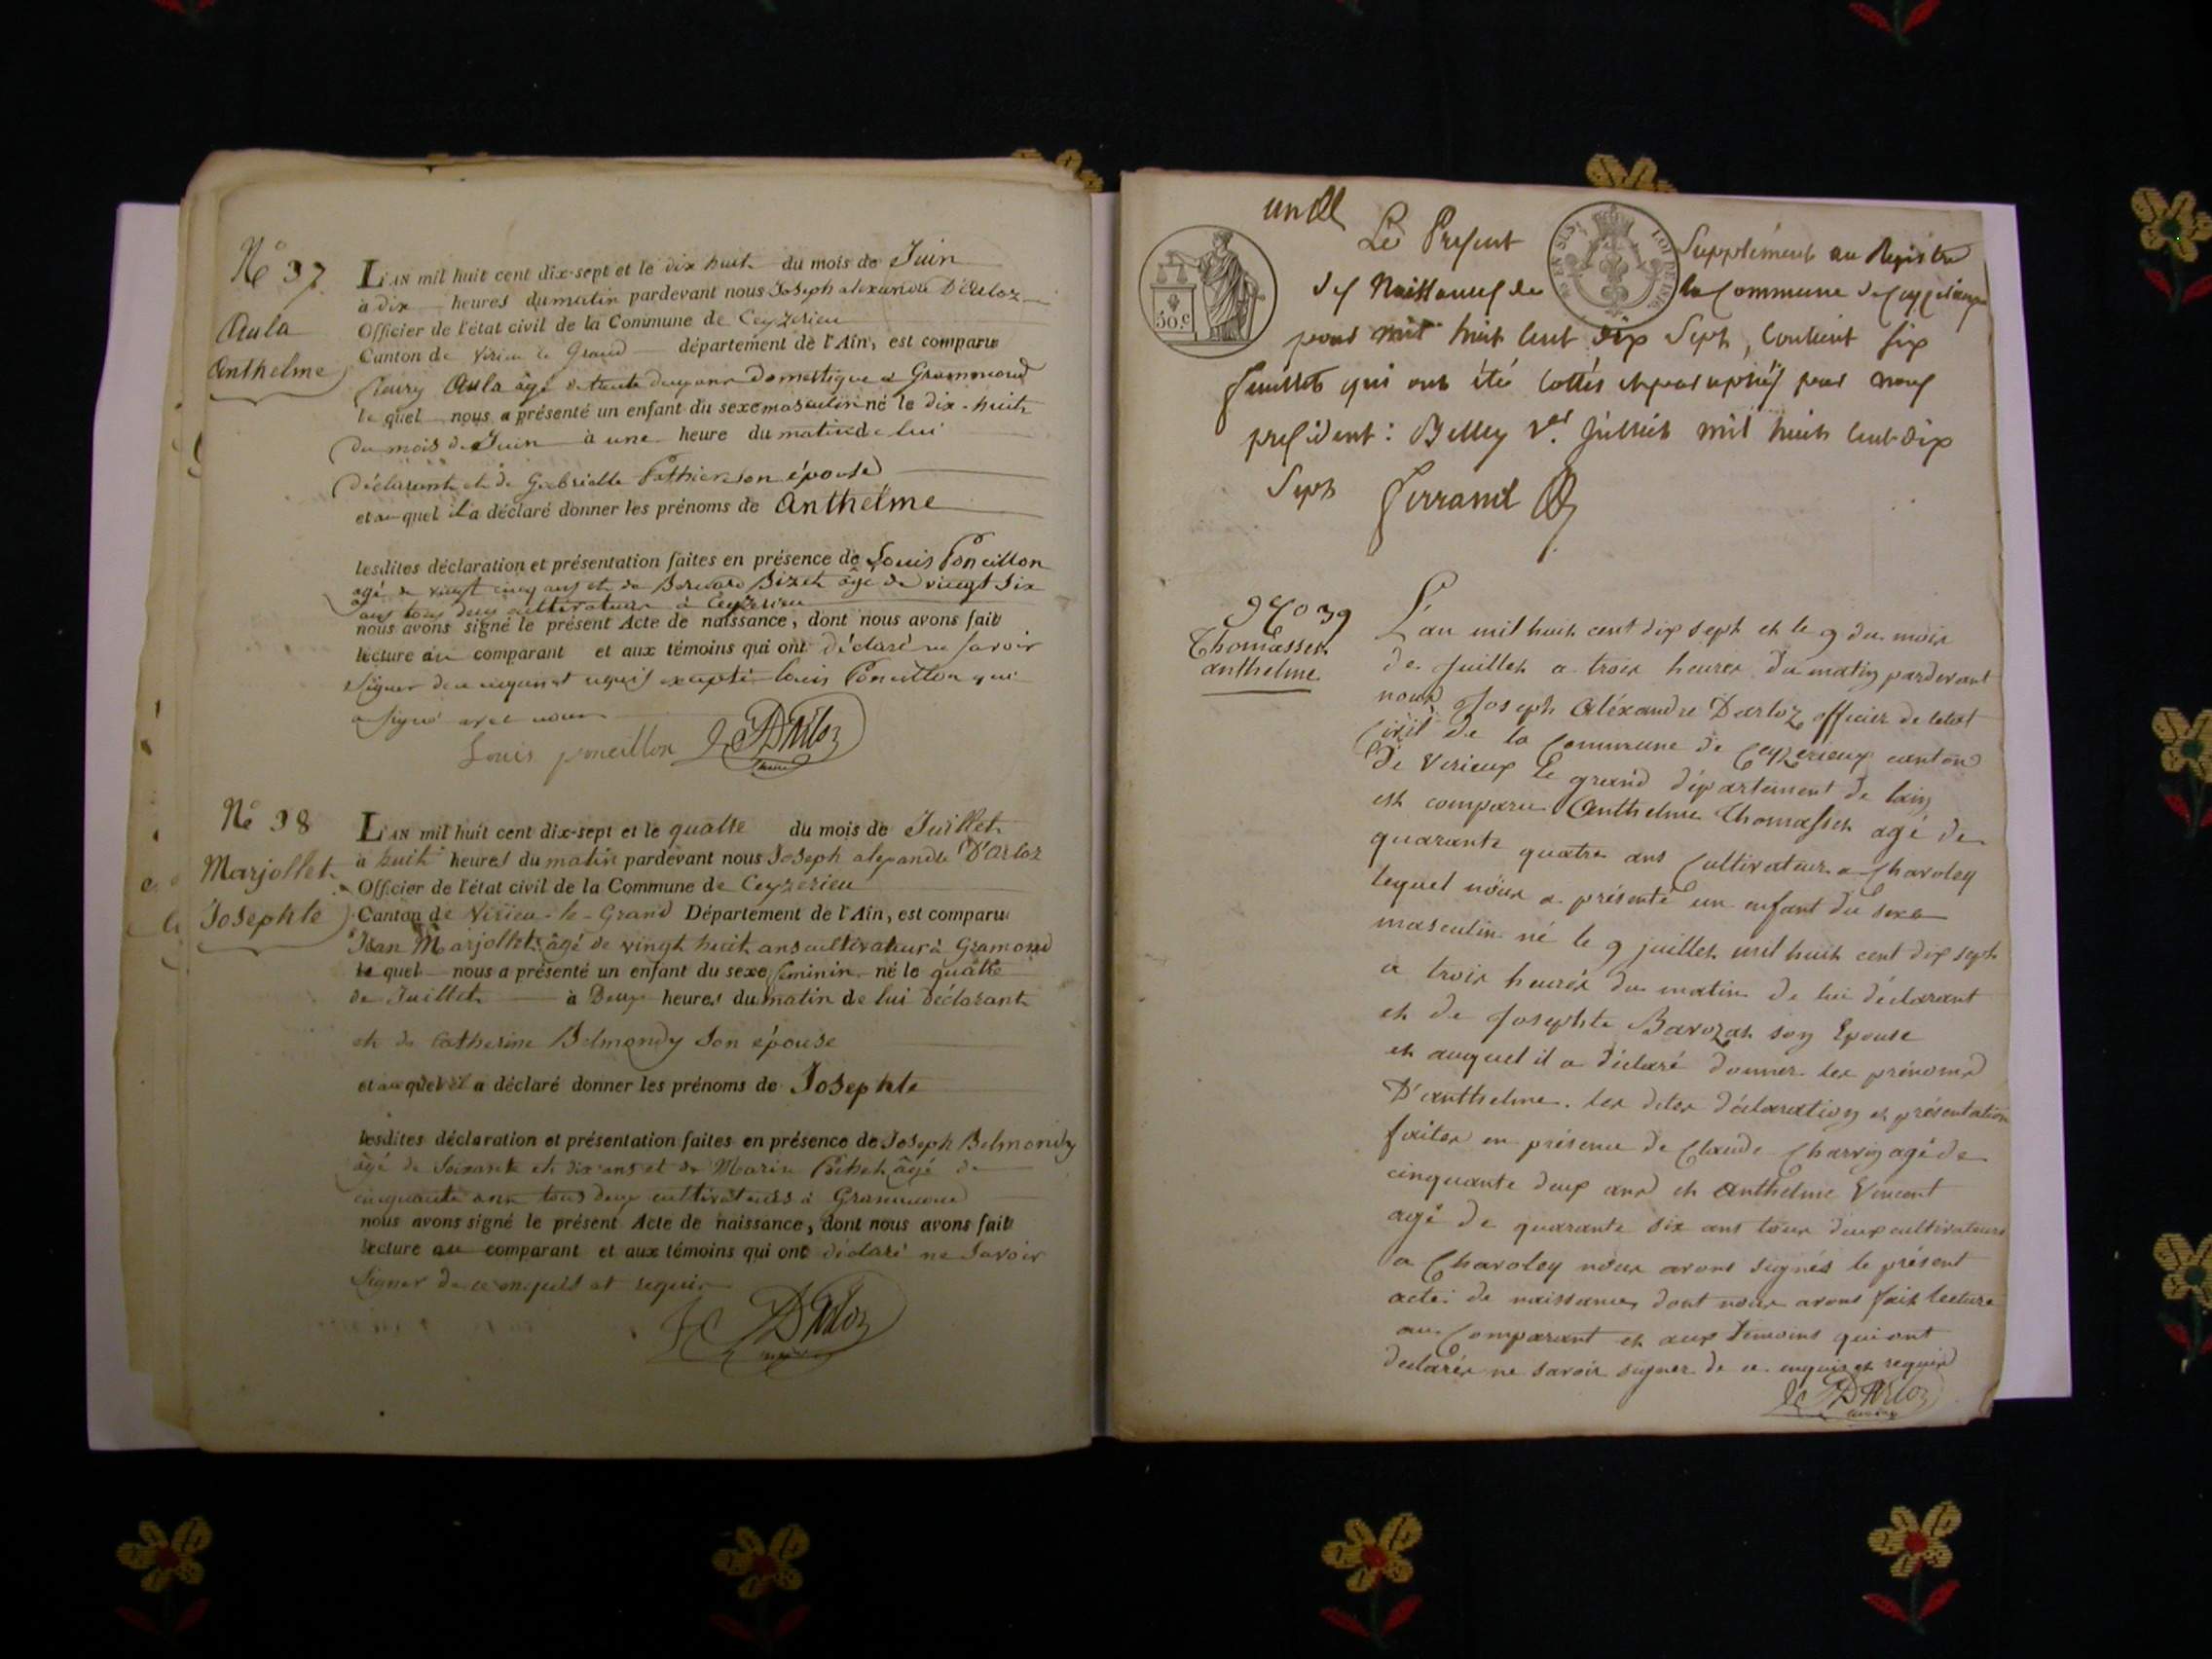 No 37
Aula
Anthelme
L'AN mil huit cent dix-sept et le dix huit du mois de Juin
à dix heures du matin pardevant nous Joseph alexandre D'Arloz
Officier de l'état civil de la Commune de Ceyzerieu
Canton de Virieu le Grand département de l'Ain, est comparu
fleury Aula âgé de trente deux ans Domestique à Grammond
le quel nous a présenté un enfant du sexe masculin né le dix-huit
du mois de Juin à une heure du matin de lui
déclarant et de Gabrielle Pathier son épouse
et auquel il a déclaré donner les prénoms de Anthelme
lesdites déclaration et présentation faites en présence de Louis Poncillon
agé de vingt cinq ans et de Bernard Bizet âgé de vingt six
ans tous deux cultivateurs à Ceyzerieu
nous avons signé le présent Acte de naissance, dont nous avons fait
lecture au comparant et aux témoins qui ont déclaré ne savoir
signer de ce enquis et requis excepté Louis Poncillon qui
a signé avec nous
Louis poncillon J A D'Arloz
No 38
Marjollet
Josephte
L'AN mil huit cent dix-sept et le quatre du mois de Juillet
à huit heures du matin pardevant nous Joseph alexandre D'Arloz
Officier de l'état civil de la Commune de Ceyzerieu
Canton de Virieu-le-Grand Département de l'Ain, est comparu
Jean Marjollet âgé de vingt huit ans cultivateur à Gramond
le quel nous a présenté un enfant du sexe féminin né le quatre
de Juillet à Deux heures du matin de lui déclarant
et de Catherine Belmondy son épouse
et auquel il a déclaré donner les prénoms de Josephte
lesdites déclaration et présentation faites en présence de Joseph Belmondy
âgé de soixante et dix ans et de Marin Pochet âgé de
cinquante ans tous deux cultivateurs à Grammond
nous avons signé le présent Acte de naissance, dont nous avons fait
lecture au comparant et aux témoins qui ont déclaré ne savoir
signer de ce enquis et requis
D'Arloz
50.c
LOI DE 1816
Le Present Supplément au Registre
des Naissances de la Commune de Ceyzerieux
pour mil huit cent dix Sept, contient six
feuillets qui ont été cottés et paraphés par nous
president: Belley 1er. Juillet mil huit cent dix
Sept Ferrand
No 39
Thomasset
anthelme
L'an mil huit cent dix sept et le 9 du mois
de Juillet a trois heures du matin pardevant
nous Joseph Aléxandre Darloz officier de letat
Civil de la Commune de Ceyzerieux canton
de Virieux le grand département de lain
est comparu Anthelme Thomasset agé de
quarante quatre ans Cultivateur a Charoley
lequel nous a présenté un enfant du sexe
masculin né le 9 juillet mil huit cent dix sept
a trois heures du matin de lui déclarant
et de Josephte Bavozat son Epouse
et auquel il a déclaré donner les prénoms
D'anthelme. les dites déclaration et présentation
faites en présence de Claude Charvin agé de
cinquante deux ans et Anthelme Vincent
agé de quarante six ans tous deux cultivateurs
a Charoley nous avons signés le présent
acte de naissance, dont nous avons fait lecture
au Comparant et aux témoins qui ont
declarés ne savoir signer de ce enquis et requis
D'Arloz